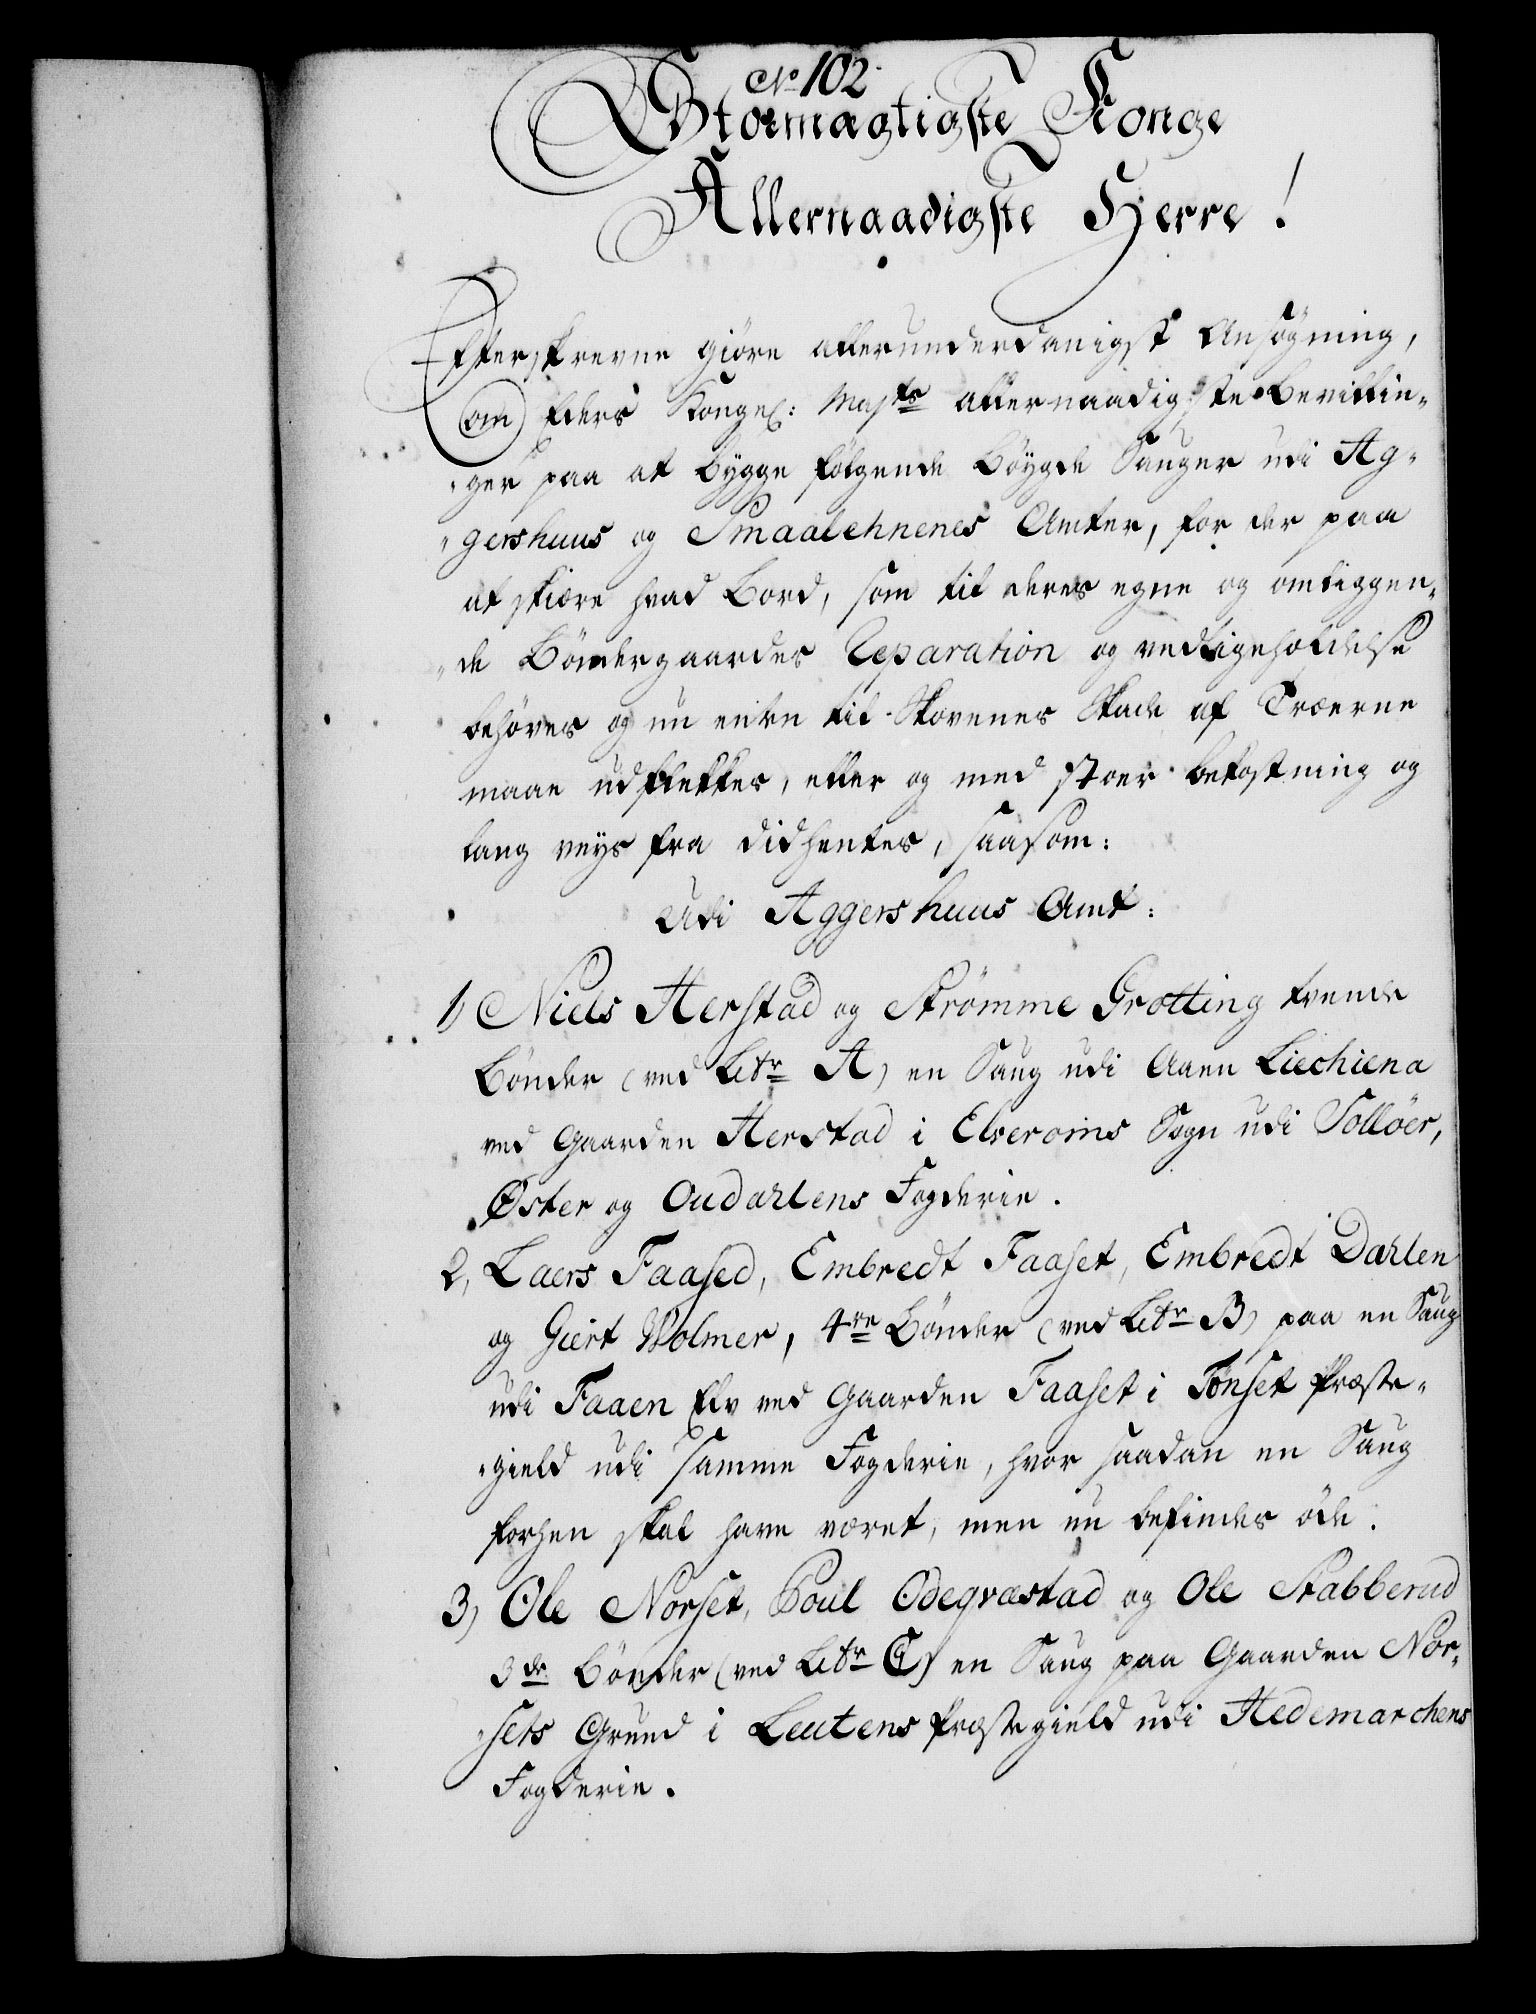 No 102.
Stormægtigste Konge
Allernaadigste Herre!
Efterskrevne giöre allerunderdanigst Ansögning,
om Eders Kongel: Majts allernaadigste Bevillin-
-ger paa at bygge følgende Böygde Sauger udi Ag-
-gershuus og Smaalehnenes Amter, for der paa
at skiære hvad Bord, som til deres egne og omliggen-
-de Böndergaardes Reparation og vedligeholdelse
behöves og nu enten til Skovenes Skade af Træerne
maae udflekkes, eller og med stoer bekostning og
lang veys fra didhentes, saasom:
Udi Aggershuus Amt:
1) Niels Herstad og Strömme Grotting tvende
Bönder (ved Litr A) en Saug udi Aaen Liechiena
ved Gaarden Herstad i Elveroms Sogn udi Sollöer,
Öster og Oudahlens Fogderie.
2, Laers Faased, Embredt Faaset, Embredt Dahlen
og Giert Wolmer, 4re Bönder (ved Litr B) paa en Saug
udi Faaen Elv ved Gaarden Faaset i Tönset Præste-
-gield udi samme Fogderie, hvor saadan en Saug
forhen skal have været, men nu befindes öde.
3) Ole Norset, Poul Ödeqvæstad og Ole Stabberud
3de Bönder (ved Litr C) en Saug paa Gaarden Nor-
-sets Grund i Leutens Præstegield udi Hedemarchens
Fogderie.